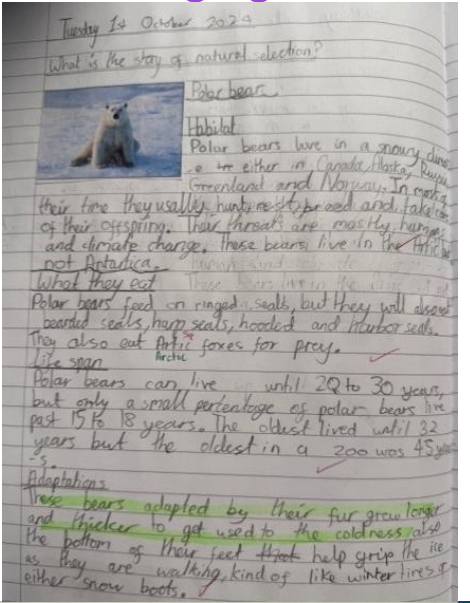 Tuesday 1st October 2024
What is the stay of natural selection?
Polar bears
Habitat
Polar bears love in a snowy
either in Canada, Alaska,
Greenland and Norway. In most of
their time they usally hunt, rest, breed and take care
of their offspring. Their threats are mostly humans
and climate change. These bears live in the Artic
not Antartica.
What they eat
Polar bears feed on ringed seals, but they will also eat
bearded seals, harp seals, hooded and harbor seals.
They also eat Artic foxes for prey.
Arctic
Life span
Polar bears can live until 20 to 30 years,
but only a small pertentage of polar bears live
past 15 to 18 years. The oldest lived until 32
years but the oldest in a zoo was 45 year
-s.
Adaptations
These bears adapted by their fur grew longer
and thicker to get used to the coldness also
the bottom of their feet help grip the ice
as they are walking, kind of like winter tires
either snow boots.